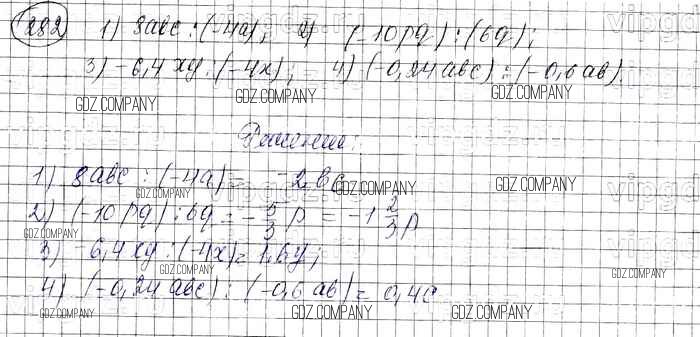 282 1) 8abc : (-4a); 2) (-10pq) : (6q);
3) -6,4xy : (-4x); 4) (-0,24abc) : (-0,6ab).
GDZ.COMPANY GDZ.COMPANY GDZ.COMPANY
Решение:
1) 8abc : (-4a) = -2bc
GDZ.COMPANY GDZ.COMPANY
2) (-10pq) : 6q = -5/3 p = -1 2/3 p
GDZ.COMPANY
3) -6,4xy : (-4x) = 1,6y;
GDZ.COMPANY GDZ.COMPANY
4) (-0,24abc) : (-0,6ab) = 0,4c
GDZ.COMPANY GDZ.COMPANY GDZ.COMPANY